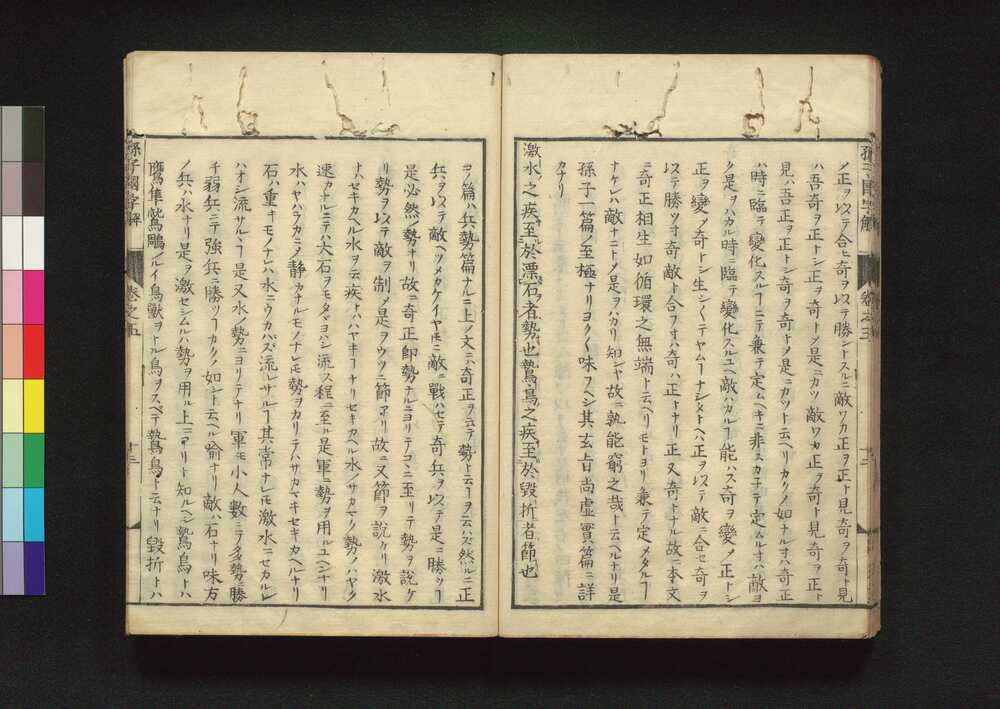 ノ正ヲ以テ合ヒ奇ヲ以テ勝ントスルニ敵ワカ正ヲ正ト見奇ヲ奇ト見
ハ吾奇ヲ正トシ正ヲ奇トメ是ニカツ敵ワカ正ヲ奇ト見奇ヲ正ト
見ハ吾正ヲ正トシ奇ヲ奇トメ是ニカツト云ヘリカクノ如ナルヿハ奇正
ハ時ニ臨テ變化スルヿニテ兼テ定ムヘキニ非スカ子テ定ムルオハ敵ヨ
ク是ヲハカル時ニ臨テ變化スルユヘ敵ハカルヿ能ハス奇ヲ變メ正トシ
正ヲ變メ奇トシ生シ〱テヤムヿナシタトヘハ正ヲ以テ敵ニ合セ奇ヲ
以テ勝ツオ奇敵ト合フオハ奇ハ正トナリ正又奇トナル故ニ本文
ニ奇正相生如循環之無端ト云ヘリモトヨリ兼テ定メタルヿ
ナケレハ敵ナニトメ是ヲハカリ知ンヤ故ニ孰能窮之哉ト云ヘルナリ是
孫子一篇ノ至極ナリヨク〱味フヘシ其玄旨尚虚實篇ニ詳
カナリ
激水之疾至於漂石者勢也鷙鳥之疾至於毀折者節也
コノ篇ハ兵勢篇ナルニ上ノ文ニハ奇正ヲ云テ勢ト云ヿヲ云ハズ然ルニ正
兵ヲ以テ敵ヘツメカケイヤトモニ敵ニ戰ハセテ奇兵ヲ以テ是ニ勝ツヿ
是必然ノ勢ナリ故ニ奇正即勢ナルニヨリテコヽニ至リテ勢ヲ説ケ
リ勢ヲ以テ敵ヲ制メ是ヲウツニ節アリ故ニ又節ヲ説ケリ激水
トハセキカヘル水ヲ云疾トハハヤキヿナリセキカヘル水ノサカマク勢ノハヤク
速カナルニテハ大石ヲモタヾヨハシ流ス程ニ至ル是軍ニ勢ヲ用ルユヘンナリ
水ハヤハラカニメ静カナルモノナレモ勢ヲカリテハサカマキセキカヘルナリ
石ハ重キモノナレハ水ニウカハズ流レサルヿ其常ナレモ激水ニセカルレ
ハオシ流サルヽヿ是又水ノ勢ニヨリテナリ軍モ小人數ニテ多勢ニ勝
チ弱兵ニテ強兵ニ勝ツヿカクノ如シト云ヘル喩ナリ敵ハ石ナリ味方
ノ兵ハ水ナリ是ヲ激セシムルハ勢ヲ用ル上ニアリト知ルヘシ鷙鳥トハ
鷹隼鷲鵰ノルイ鳥獸ヲトル鳥ヲスベテ鷙鳥ト云ナリ毀折トハ
孫子國字解
卷之五
十三